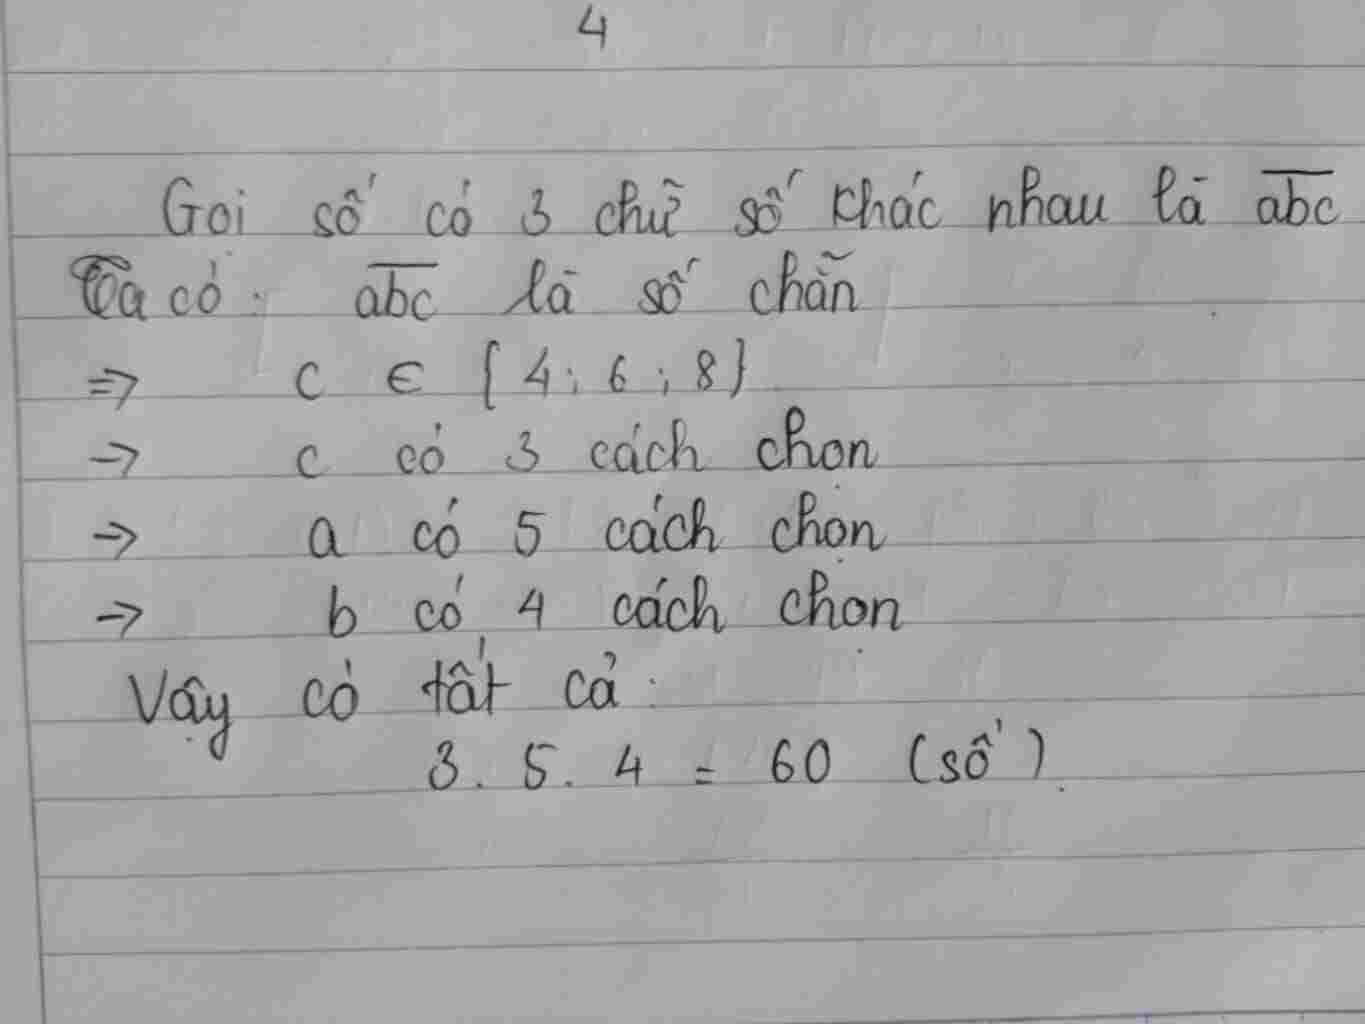 4
Gọi số có 3 chữ số khác nhau là abc
Ta có: abc là số chẵn
=> c ∈ {4; 6; 8}
-> c có 3 cách chọn
-> a có 5 cách chọn
-> b có 4 cách chọn
Vậy có tất cả:
3. 5. 4 = 60 (số).